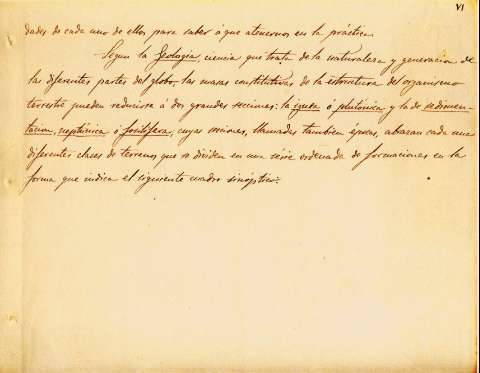 VI
dades de cada uno de ellos para saber á que atenernos en la práctica.
Segun la Geologia, ciencia que trata de la naturaleza y generacion de
las diferentes partes del globo, las masas constitutivas de la estructura del organismo
terrestre pueden reducirse á dos grandes secciones: la ígnea ó plutónica y la de sedimen-
tacion, neptúnica ó fosilífera, cuyas secciones, llamadas tambien épocas, abrazan cada una
diferentes clases de terrenos que se dividen en una série ordenada de formaciones en la
forma que indica el siguiente cuadro sinóptico: